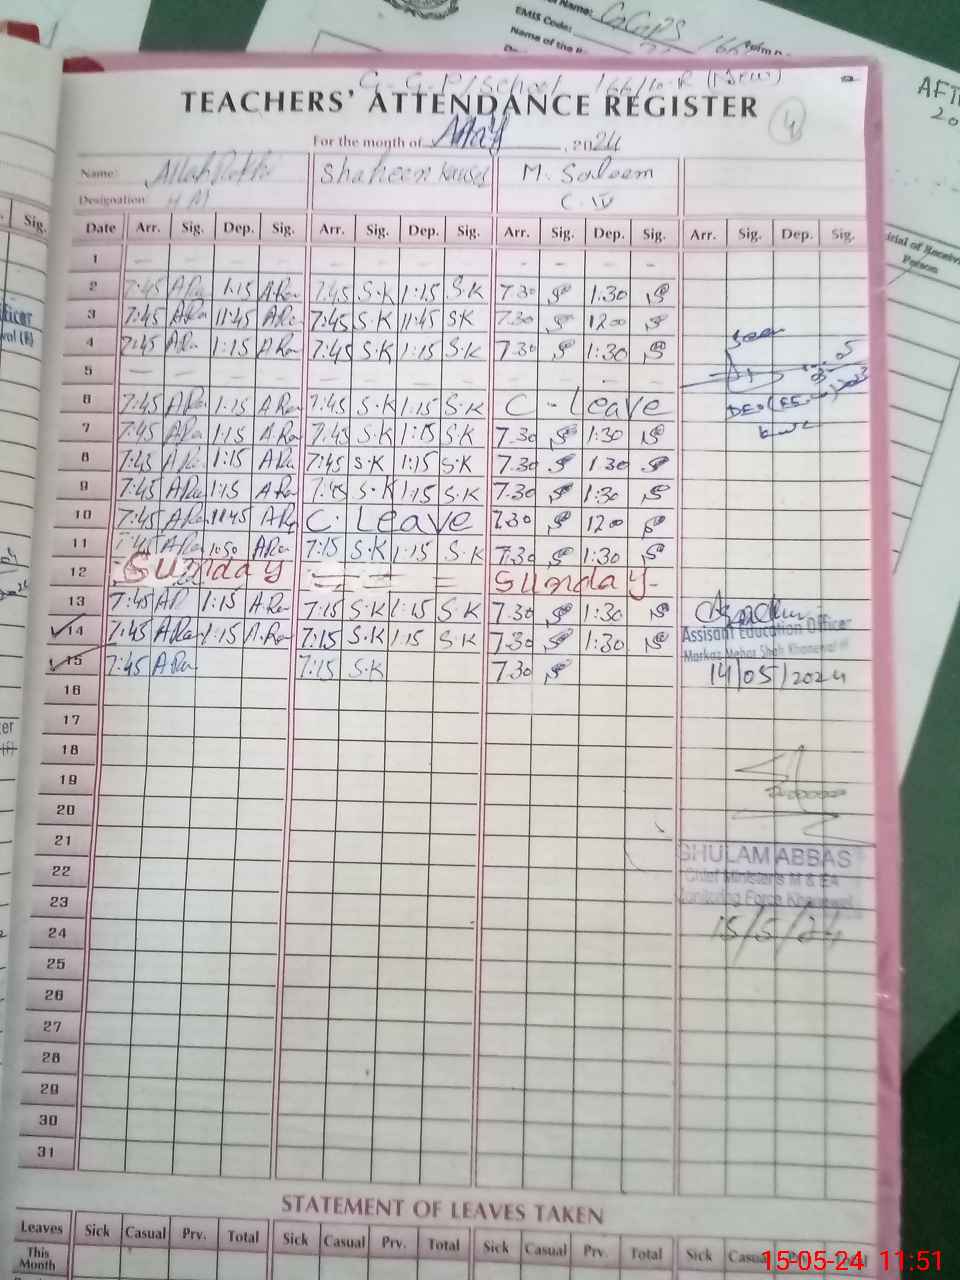 EMIS Code:
AFT
20
G.G.P/School 166/10-R (New)
TEACHERS' ATTENDANCE REGISTER
4
For the month of May, 2024
Name: Shaheen Kausar M. Saleem
Designation: HM C.IV
Date Arr. Sig. Dep. Sig. Arr. Sig. Dep. Sig. Arr. Sig. Dep. Sig. Arr. Sig. Dep. Sig.
1 - - - - - - - - - - - -
2 7:45 A Ra 1:15 A Ra 7:45 S.K 1:15 S.K 7.30 1:30
3 7:45 A Ra 11:45 A Ra 7:45 S.K 11:45 SK 7.30 1200
4 7:45 A Ra 1:15 A Ra 7:45 S.K 1:15 S.K 7.30 1:30
Seen
5 - - - - - - - - - -
6 7:45 A Ra 1:15 A Ra 7:45 S.K 1:15 S.K C - Leave
7 7:45 A Ra 1:15 A Ra 7:45 S.K 1:15 S.K 7.30 1:30
8 7:45 A Ra 1:15 A Ra 7:45 S.K 1:15 S.K 7.30 1 30
9 7:45 A Ra 1:15 A Ra 7:45 S.K 1:15 S.K 7.30 1:30
10 7:45 A Ra 11:45 A Ra C. Leave 7.30 1200
11 7:45 A Ra 1050 A Ra 7:15 S.K 1:15 S.K 7.30 1:30
12 Sunday = = = Sunday
13 7:45 A R 1:15 A Ra 7:15 S.K 1:15 S.K 7.30 1:30
14 7:45 A Ra 1:15 A.Ra 7:15 S.K 1:15 S.K 7.30 1:30
Assisant Education Officer
Markaz Mehar Shah Khanewal
15 7:45 A Ra 7:15 S.K 7.30
14/05/2024
16
17
18
19
20
21
GHULAM ABBAS
22
Chief Minister's M & EA
23
Monitoring Force Khanewal
24
15/5/24
25
26
27
28
29
30
31
STATEMENT OF LEAVES TAKEN
Leaves Sick Casual Prv. Total Sick Casual Prv. Total Sick Casual Prv. Total Sick Casual Prv.
This
Month
15-05-24 11:51